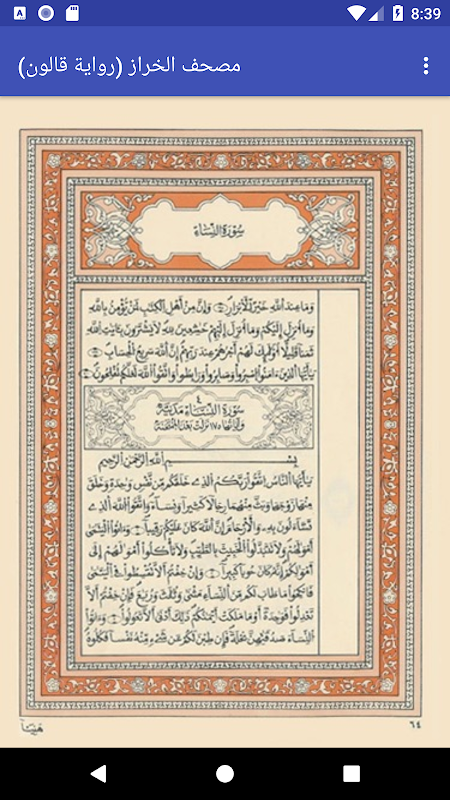 A
8:39
مصحف الخراز (رواية قالون)
سُورَةُ النِّسَاءِ
وَمَا عِندَ اَللَّهِ خَيْرٌ لِّلَابْرَارِ وَإِنَّ مِنْ أَهْلِ اِلْكِتَٰبِ لَمَنْ يُّؤْمِنُ بِاللَّهِ
وَمَا أُنزِلَ إِلَيْكُمْ وَمَا أُنزِلَ إِلَيْهِمْ خَٰشِعِينَ لِلهِ لَا يَشْتَرُونَ بِـَٔايَٰتِ اِللَّهِ
ثَمَناً قَلِيلاً أُوْلَٰئِكَ لَهُمْ أَجْرُهُمْ عِندَ رَبِّهِمْ إِنَّ اَللَّهَ سَرِيعُ اُلْحِسَابِ
يَٰأَيُّهَا اَلذِينَ ءَامَنُواْ اُصْبِرُواْ وَصَابِرُواْ وَرَابِطُواْ وَاتَّقُواْ اُللَّهَ لَعَلَّكُمْ تُفْلِحُونَ
٤
سُورَةُ النِّسَاءِ مَدَنِيَّة
وَآيَاتُهَا ١٧٥ نَزَلَتْ بَعْدَ الْمُمْتَحِنَةِ
بِسْمِ اِللَّهِ اِلرَّحْمَٰنِ اِلرَّحِيمِ
يَٰأَيُّهَا اَلنَّاسُ اُتَّقُواْ رَبَّكُمُ اُلذِے خَلَقَكُم مِّن نَّفْسٍ وَٰحِدَةٍ وَخَلَقَ
مِنْهَا زَوْجَهَا وَبَثَّ مِنْهُمَا رِجَالاً كَثِيراً وَنِسَاءً وَاتَّقُواْ اُللَّهَ اَلذِے
تَسَّاءَلُونَ بِهِ وَالْأَرْحَامَ إِنَّ اَللَّهَ كَانَ عَلَيْكُمْ رَقِيباً وَءَاتُواْ اُلْيَتَٰمَىٰ
أَمْوَٰلَهُمْ وَلَا تَتَبَدَّلُواْ اُلْخَبِيثَ بِالطَّيِّبِ وَلَا تَأْكُلُواْ أَمْوَٰلَهُمْ إِلَىٰ
أَمْوَٰلِكُمْ إِنَّهُ كَانَ حُوباً كَبِيراً وَإِنْ خِفْتُمْ أَلَّا تُقْسِطُواْ فِي اِلْيَتَٰمَىٰ
فَانكِحُواْ مَا طَابَ لَكُم مِّنَ اَلنِّسَاءِ مَثْنَىٰ وَثُلَٰثَ وَرُبَٰعَ فَإِنْ خِفْتُمْ أَلَّا
تَعْدِلُواْ فَوَٰحِدَةً أَوْ مَا مَلَكَتْ أَيْمَٰنُكُمْ ذَٰلِكَ أَدْنَىٰ أَلَّا تَعُولُواْ وَءَاتُواْ
اُلنِّسَاءَ صَدُقَٰتِهِنَّ نِحْلَةً فَإِن طِبْنَ لَكُمْ عَن شَيْءٍ مِّنْهُ نَفْساً فَكُلُوهُ
هَنِيئاً
٦٤